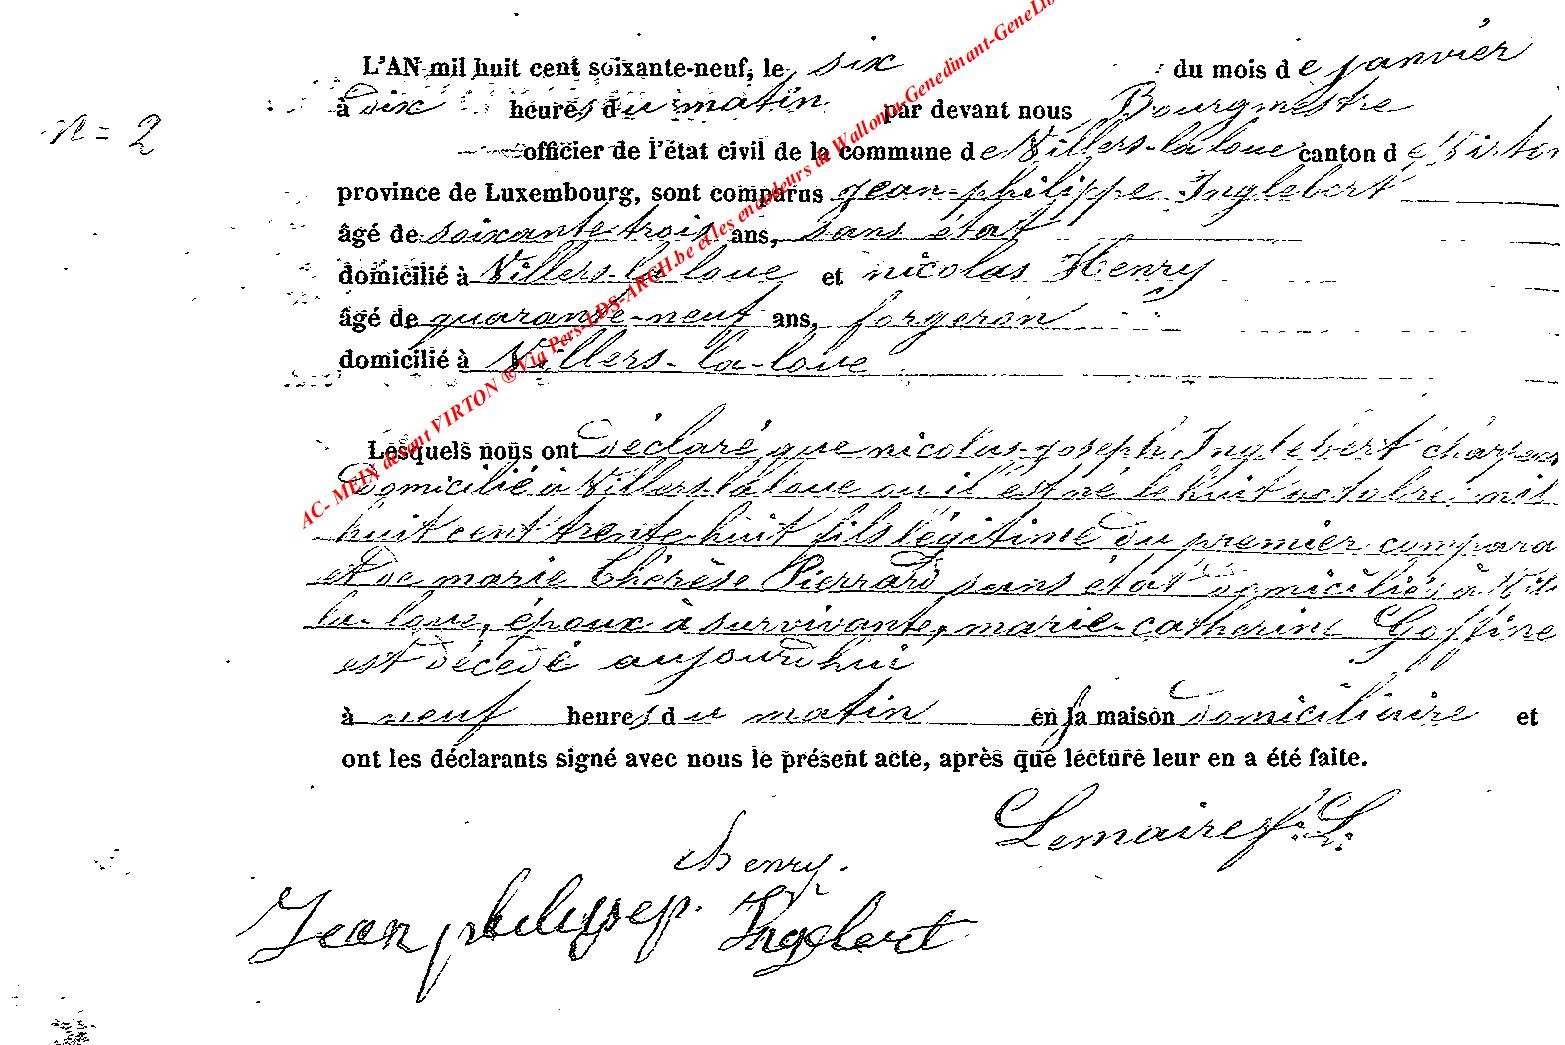 L'AN mil huit cent soixante-neuf, le six du mois de janvier
n = 2
à dix heures du matin par devant nous Bourgmestre
officier de l'état civil de la commune de Villers-la loue canton de Virton
province de Luxembourg, sont comparus jean-philippe Inglebert
âgé de soixante trois ans, sans état
domicilié à Villers-la loue et nicolas Henry
âgé de quarante-neuf ans, forgeron
domicilié à Villers-la-loue
Lesquels nous ont déclaré que nicolas-joseph Inglebert charpen
domicilié à Villers-la loue ou il est né le huit octobre mil
huit cent trente-huit fils légitime du premier compara
et de marie thérèse Pierrard sans état domiciliés à Vill
la-loue, époux à survivante, marie-catherine Goffine
est décédé aujourd'hui
à neuf heures du matin en sa maison domiciliaire et
ont les déclarants signé avec nous le présent acte, après que lecture leur en a été faite.
Lemaire
henry.
Jean philippe Ingelbert
AC- MEIX devant VIRTON ® Via Pers-LDS-ARCH.be et les encodeurs de Wallonia-Genedinant-GeneLib